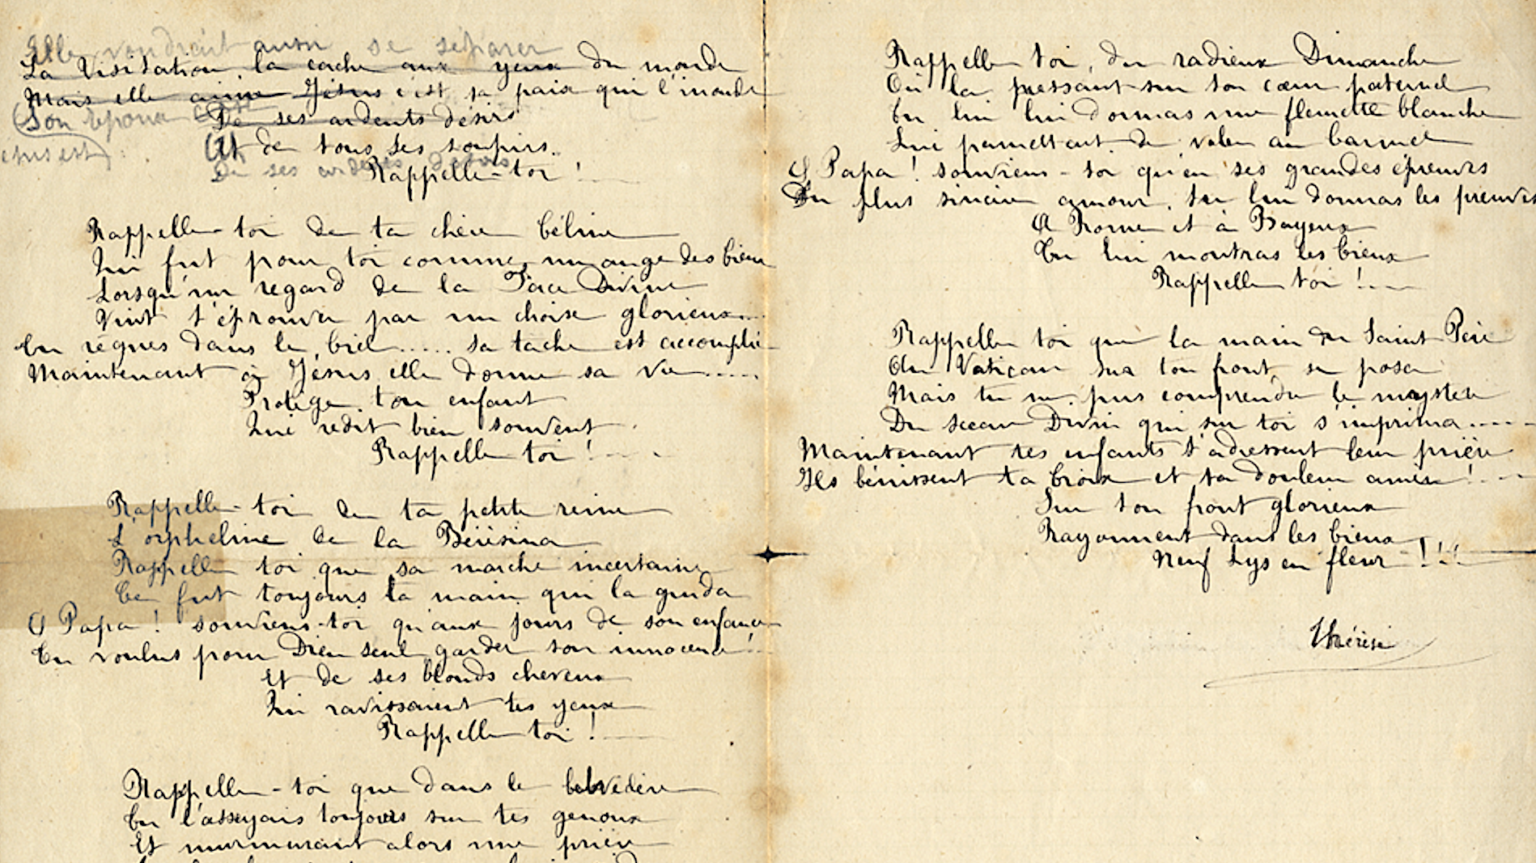 Elle voudrait aussi se séparer
La Visitation la cache aux yeux du monde
Mais elle aime Jésus c'est sa paix qui l'inonde
Son époux
De ses ardents désirs
Et de tous ses soupirs.
De ses ardents désirs
Rappelle-toi !
Rappelle-toi de ta chère Céline
Qui fut pour toi comme un ange des Cieux
Lorsqu'un regard de la Face Divine
Vint t'éprouver par un choix glorieux...
Tu règnes dans le Ciel..... sa tache est accomplie
Maintenant à Jésus elle donne sa vie.....
Protège ton enfant
Qui redit bien souvent
Rappelle toi !
Rappelle-toi de ta petite reine
L'orpheline de la Bérésina
Rappelle toi que sa marche incertaine
Ce fut toujours ta main qui la guida
O Papa ! souviens-toi qu'aux jours de son enfance
Tu voulus pour Dieu seul garder son innocence !
Et de ses blonds cheveux
Qui ravissaient tes yeux
Rappelle toi !
Rappelle-toi que dans le belvédère
Tu l'asseyais toujours sur tes genoux
Et murmurant alors une prière
Rappelle toi, du radieux Dimanche
Où la pressant sur ton cœur paternel
Tu lui donnas une fleurette blanche
Lui permettant de voler au Carmel
O Papa ! souviens-toi qu'en ses grandes épreuves
Du plus sincère amour, tu lui donnas les preuves
A Rome et à Bayeux
Tu lui montras les Cieux
Rappelle toi !
Rappelle toi que la main du Saint Père
Au Vatican sur ton front se posa
Mais tu ne pus comprendre le mystère
Du sceau Divin qui sur toi s'imprima.....
Maintenant tes enfants t'adressent leur prière
Ils bénissent ta Croix et ta douleur amère !
Sur ton front glorieux
Rayonnent dans les Cieux
Neuf Lys en fleur !!!
Thérèse